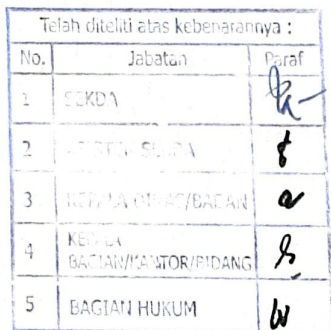 Telah diteliti atas kebenarannya :
No. Jabatan Paraf
1 SEKDA
2
3 KEPALA DINAS/BADAN
4 KEPALA
BAGIAN/KANTOR/BIDANG
5 BAGIAN HUKUM